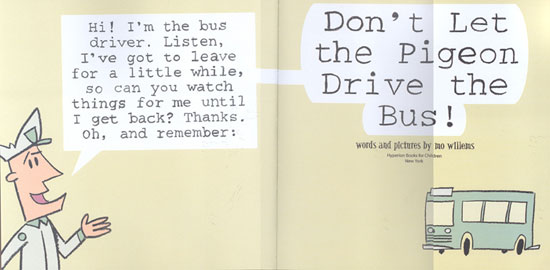 Hi! I'm the bus
driver. Listen,
I've got to leave
for a little while,
so can you watch
things for me until
I get back? Thanks.
Oh, and remember:
Don't Let
the Pigeon
Drive the
Bus!
words and pictures by mo willems
Hyperion Books for Children
New York